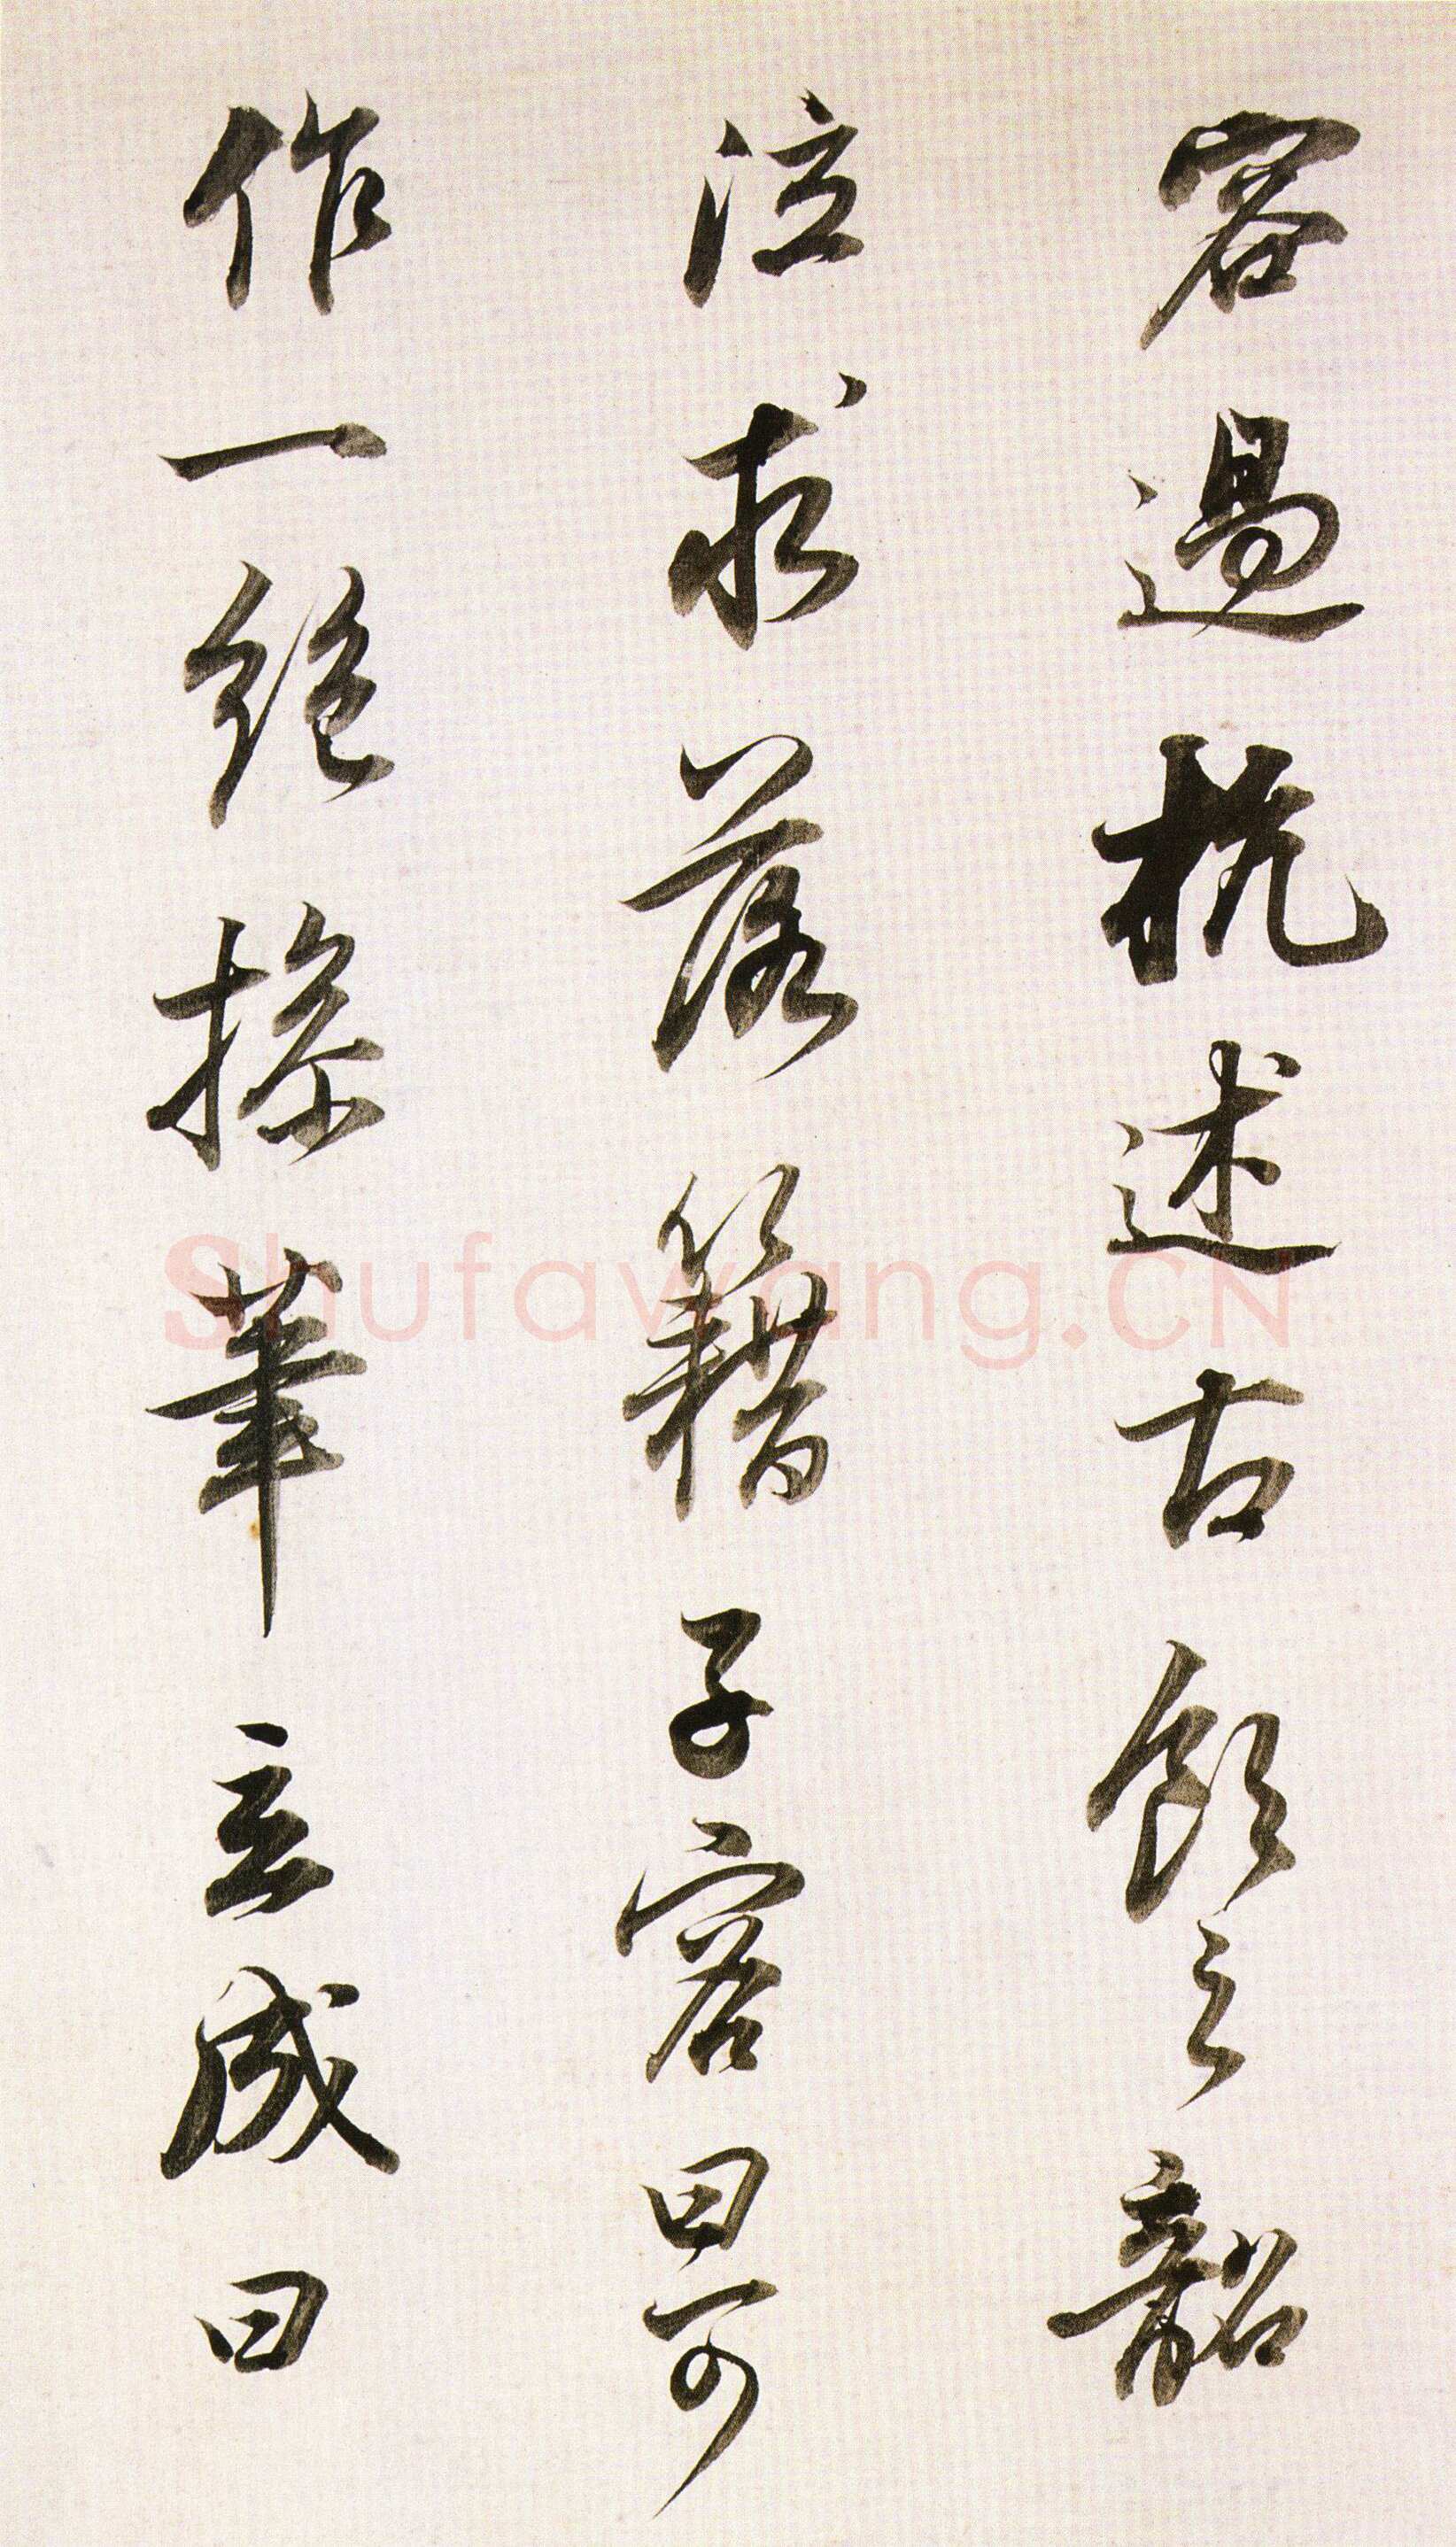 容過杭述古飲之韶
泣求落籍子容曰可
作一絕援筆立成曰
Shufawang.CN